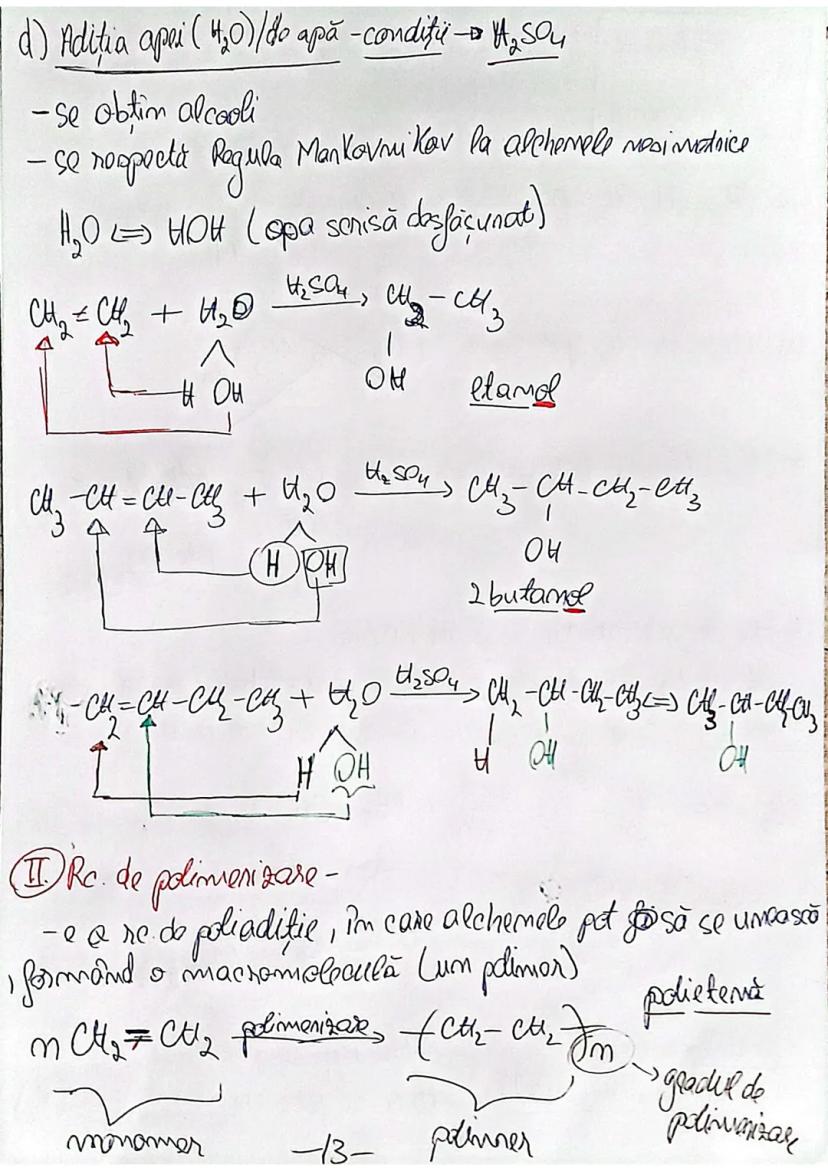 d) Adiția apei (H₂O)/de apă - condiții → H₂SO₄
- se obțin alcooli
- se respectă Regula Markovnikov la alchenele nesimetrice
H₂O ⇔ HOH (apa scrisă desfășurat)
CH₂ = CH₂ + H₂O —H₂SO₄→ CH₂ - CH₃
H OH OH etanol
CH₃ - CH = CH - CH₃ + H₂O —H₂SO₄→ CH₃ - CH - CH₂ - CH₃
H OH OH
2 butanol
- CH₂ = CH - CH₂ - CH₃ + H₂O —H₂SO₄→ CH₂ - CH - CH₂ - CH₃ ⇔ CH₃ - CH - CH₂ CH₃
H OH H OH OH
II. Rc. de polimerizare -
- e o rc. de poliadiție, în care alchenele pot să se unească
, formând o macromoleculă (un polimer)
polietenă
n CH₂ = CH₂ —polimerizare→ -(CH₂ - CH₂)-n
gradul de
polimerizare
monomer -13- polimer